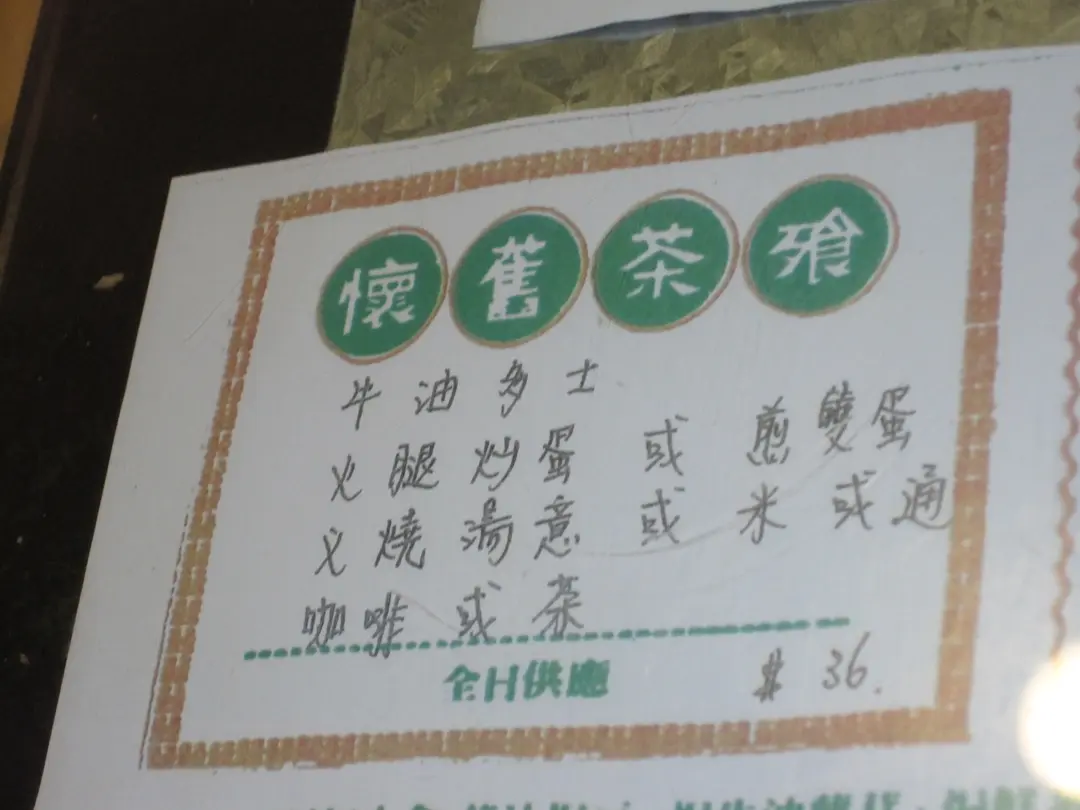 懷舊茶飱
牛油多士
火腿炒蛋 或 煎雙蛋
义燒湯意 或 米 或 通
咖啡 或 茶
全日供應 $ 36.